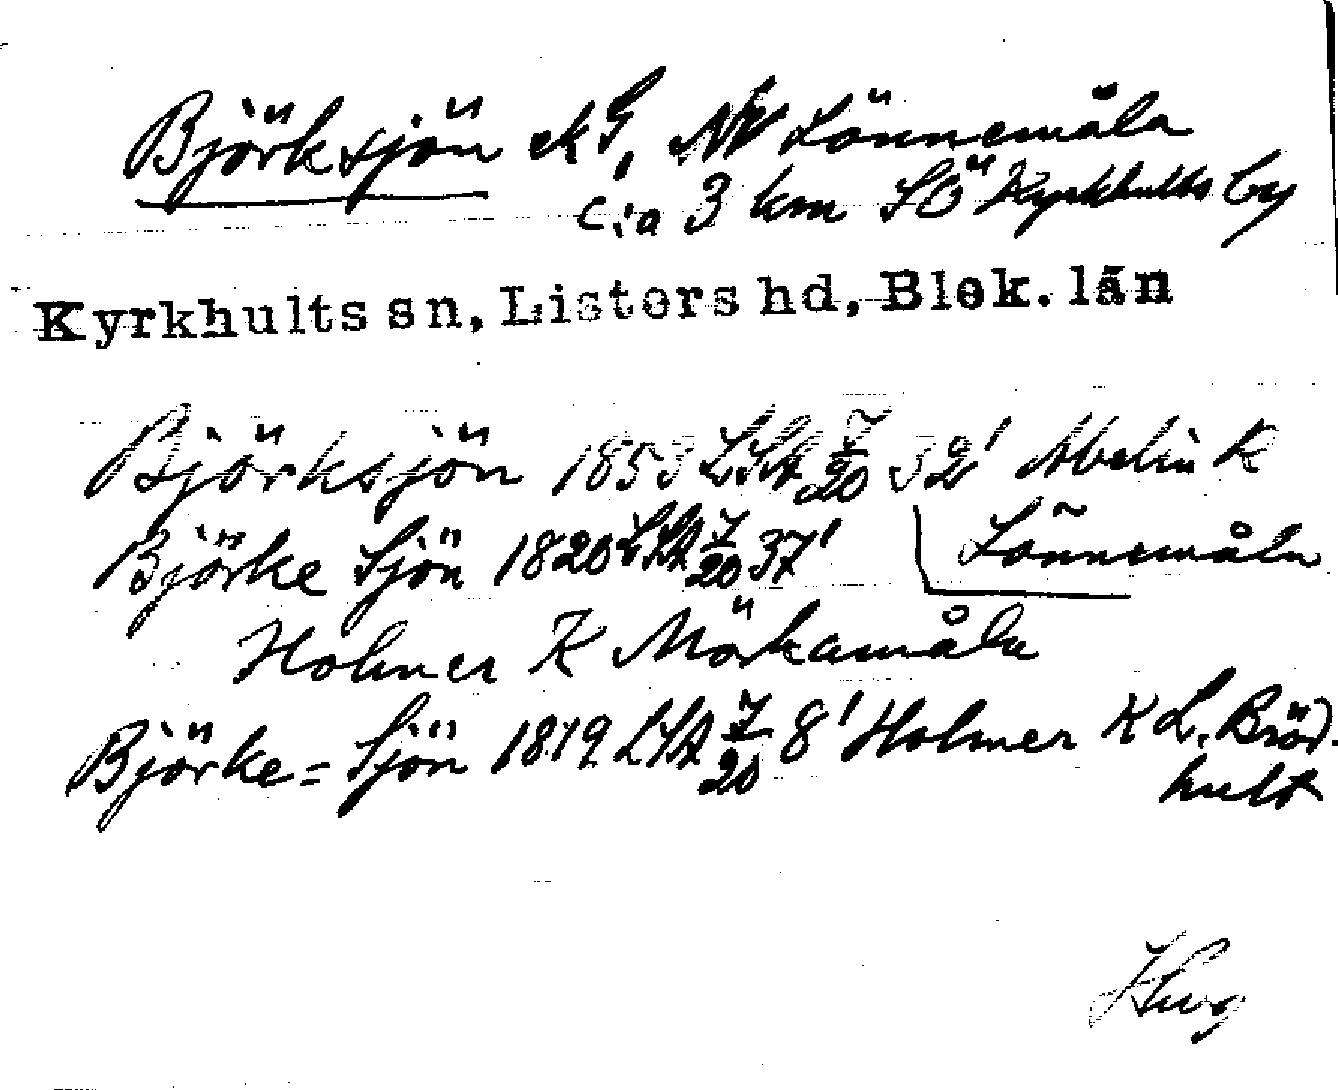 Björksjön ek G, NV Lönnemåla
c:a 3 km SÖ Kyrkhults by
Kyrkhults sn, Listers hd, Blek. län
Björksjön 1853 LSA 7/20 32' Abelin K
Lönnemåla
Björke Sjön 1820 LSA 7/20 37'
Holmer K Mörkamåla
Björke=Sjön 1819 LSA 7/20 8' Holmer K L. Bröd-
hult